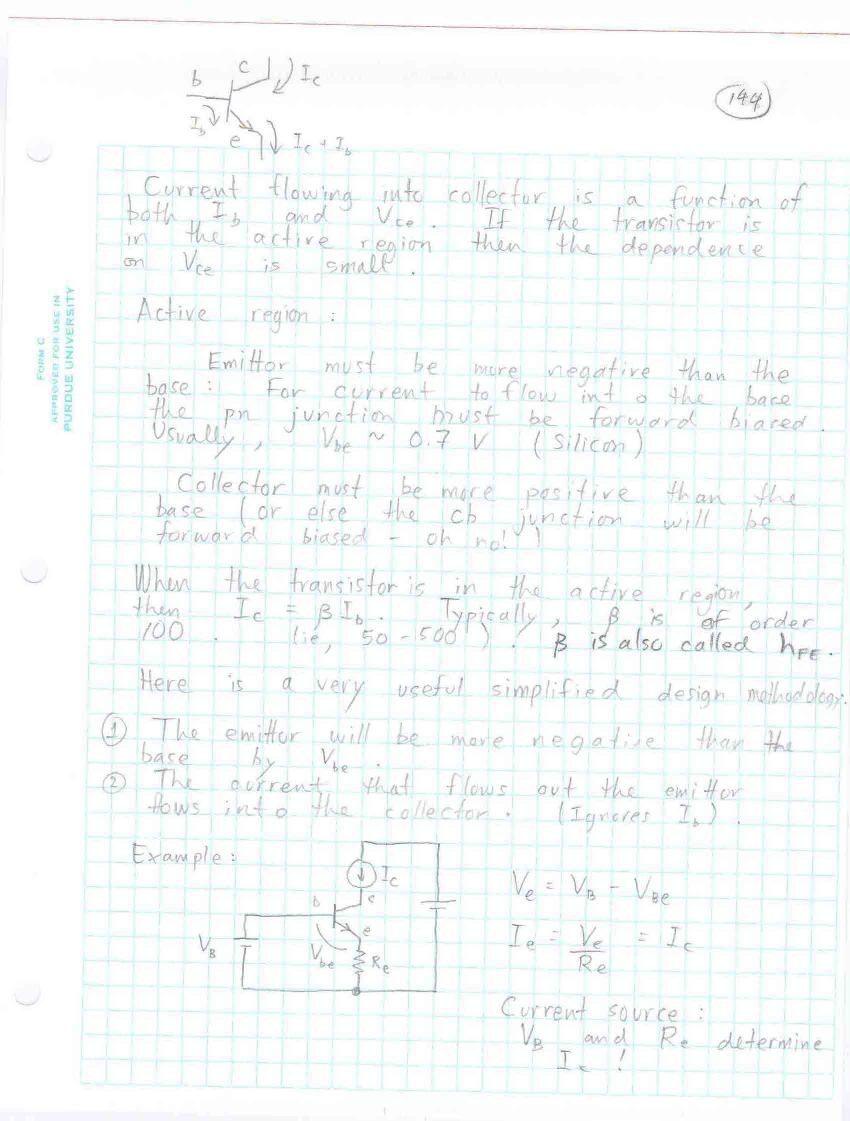 b
c
Ic
144
Ib
e
Ic + Ib
Current flowing into collector is a function of
both Ib and Vce. If the transistor is
in the active region then the dependence
on Vce is small.
FORM C
APPROVED FOR USE IN
PURDUE UNIVERSITY
Active region :
Emittor must be more negative than the
base : For current to flow into the base
the pn junction must be forward biased.
Usually, Vbe ~ 0.7 V (Silicon)
Collector must be more positive than the
base (or else the cb junction will be
forward biased - oh no! )
When the transistor is in the active region,
then Ic = β Ib. Typically, β is of order
100. (ie, 50 - 500 ). β is also called hFE.
Here is a very useful simplified design methodology.
① The emittor will be more negative than the
base by Vbe.
② The current that flows out the emittor
flows into the collector. (Ignores Ib).
Example :
Ic
c
b
e
VB
Vbe
Re
Ve = VB - VBe
Ie = Ve/Re = Ic
Current source :
VB and Re determine
Ic !